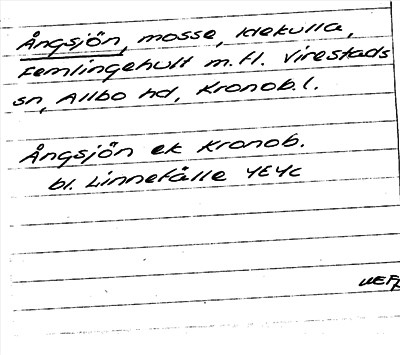 Ångsjön, mosse, Klekulla,
Femlingehult m.fl. Virestads
sn, Allbo hd, Kronob.l.
Ångsjön ek Kronob.
bl. Linnefälle 4E4c